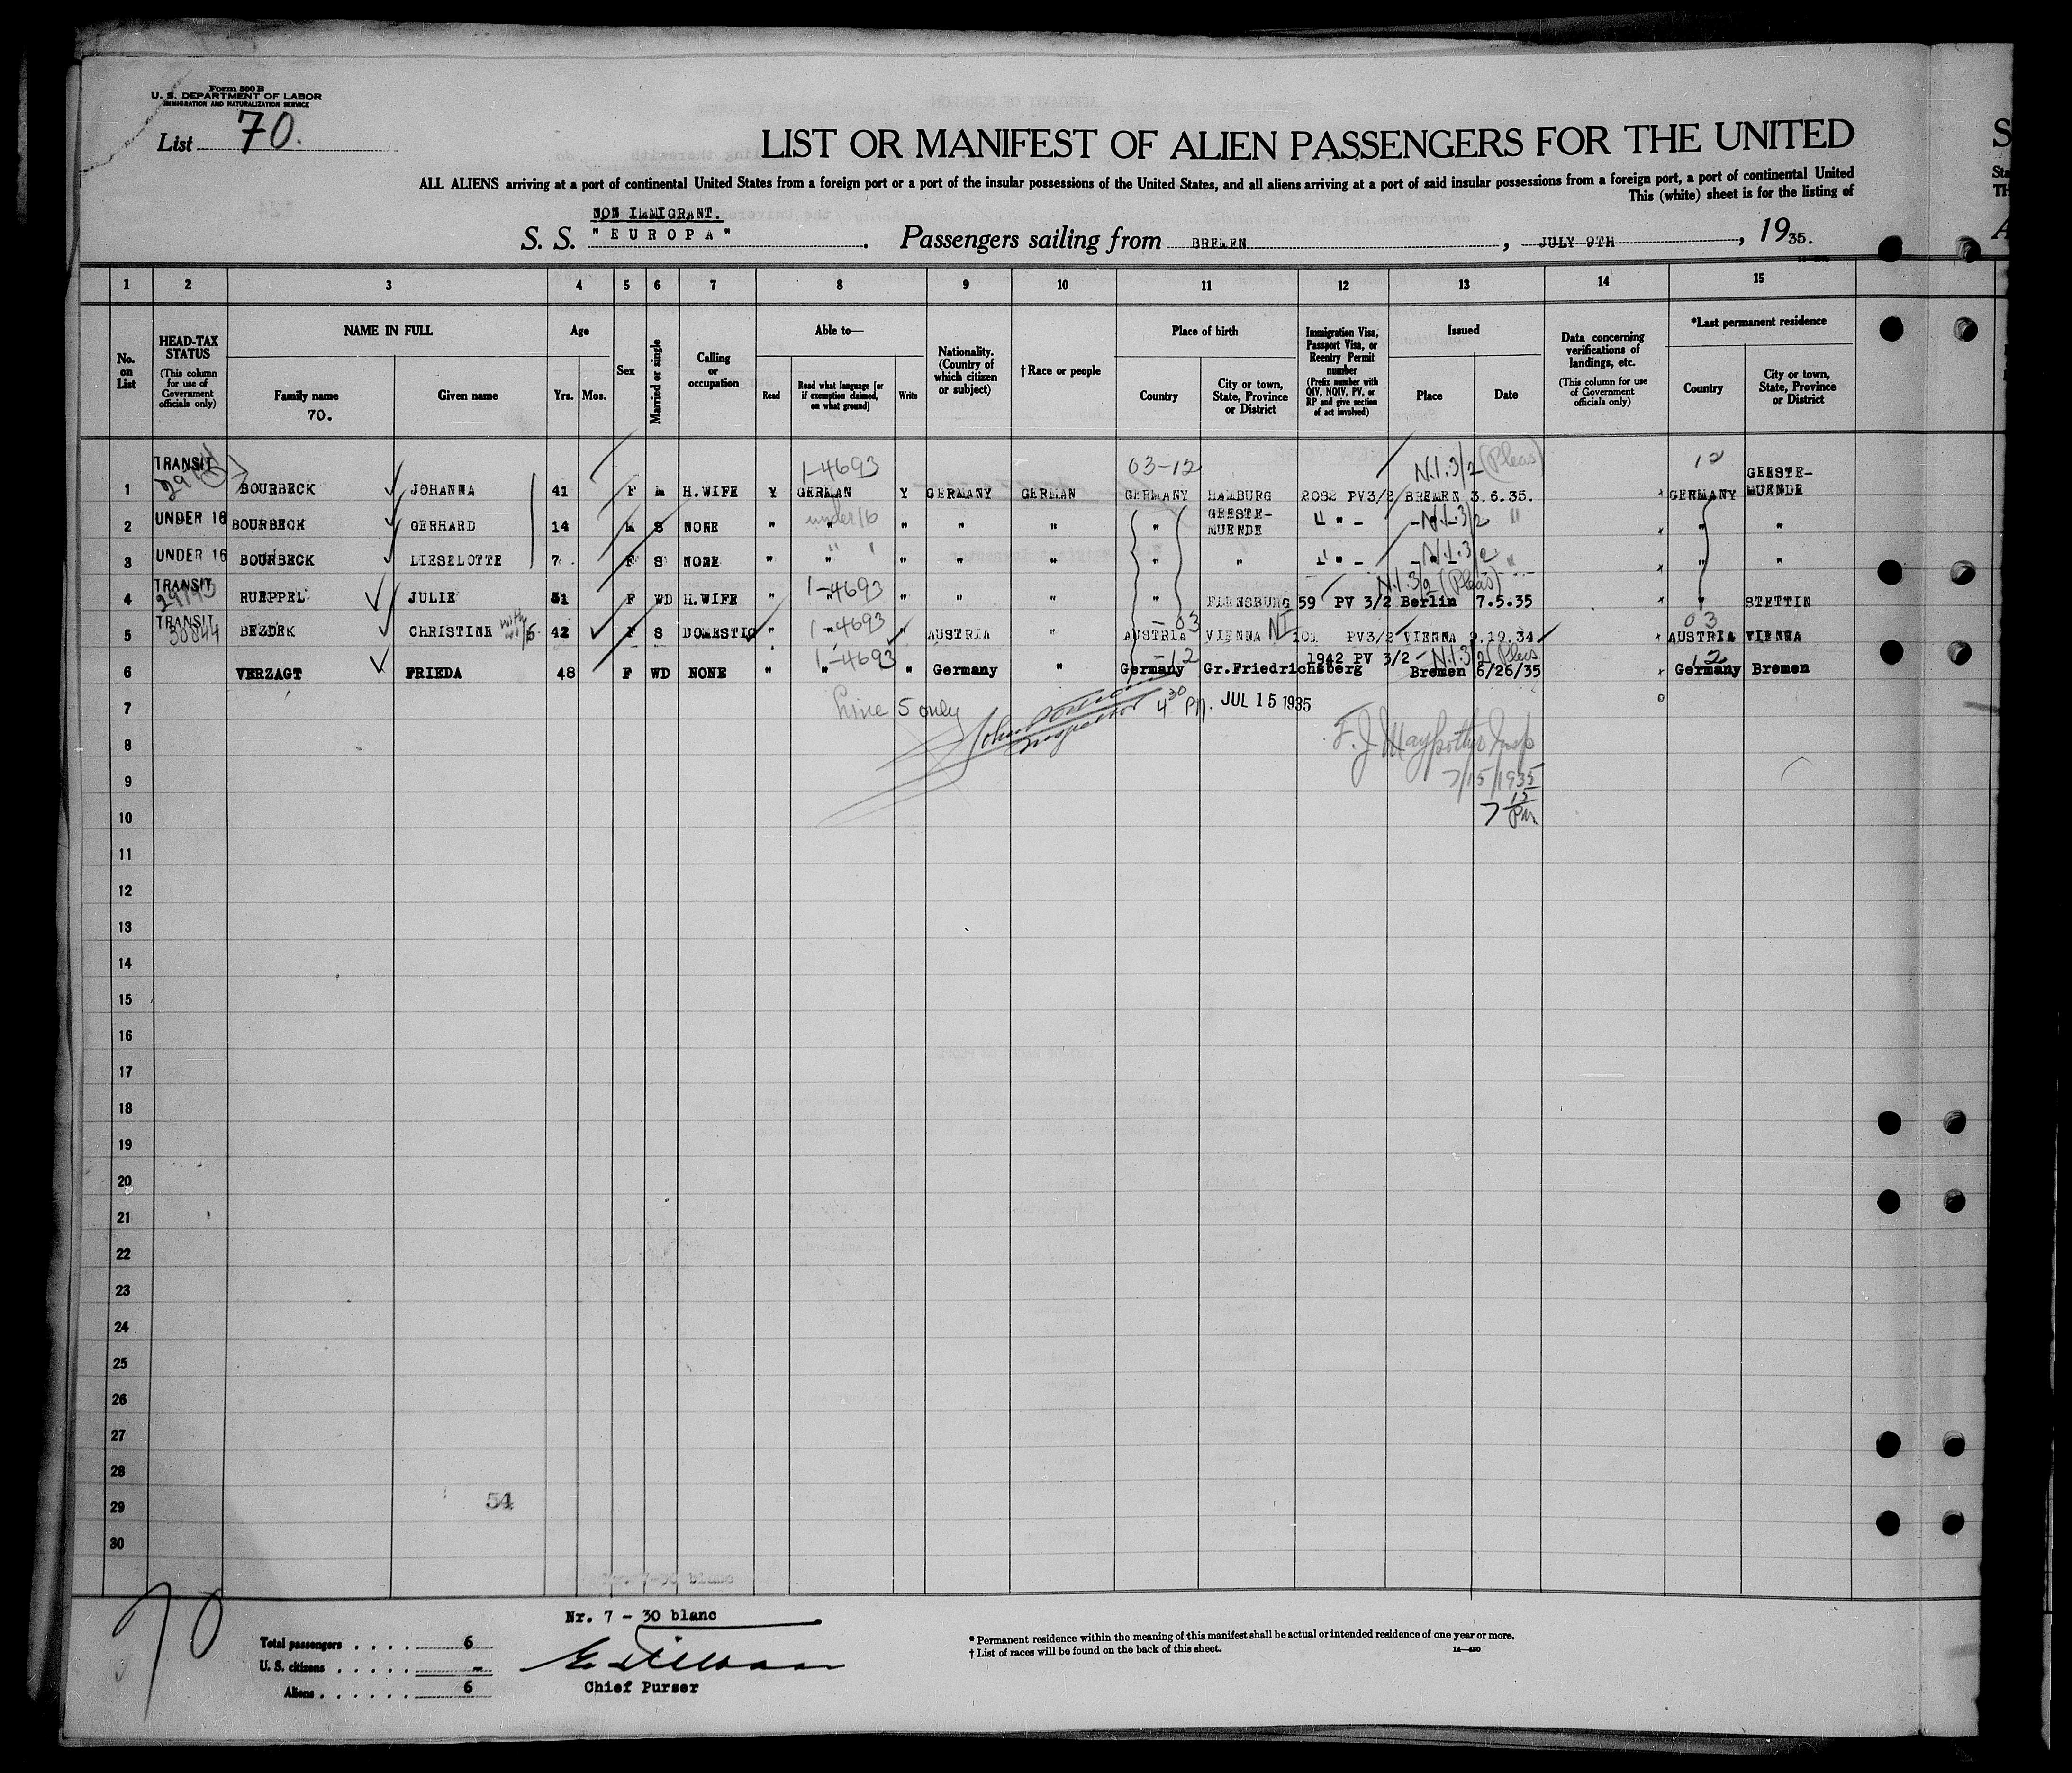 Form 500 B
U. S. DEPARTMENT OF LABOR
IMMIGRATION AND NATURALIZATION SERVICE
List 70.
LIST OR MANIFEST OF ALIEN PASSENGERS FOR THE UNITED
ALL ALIENS arriving at a port of continental United States from a foreign port or a port of the insular possessions of the United States, and all aliens arriving at a port of said insular possessions from a foreign port, a port of continental United
This (white) sheet is for the listing of
NON IMMIGRANT.
S. S. "EUROPA". Passengers sailing from BREMEN, JULY 9TH, 1935.
1 2 3 4 5 6 7 8 9 10 11 12 13 14 15
No. on List
HEAD-TAX STATUS
(This column for use of Government officials only)
NAME IN FULL
Family name
70.
Given name
Age
Yrs. Mos.
Sex
Married or single
Calling or occupation
Able to—
Read
Read what language [or if exemption claimed, on what ground]
Write
Nationality. (Country of which citizen or subject)
†Race or people
Place of birth
Country
City or town, State, Province or District
Immigration Visa, Passport Visa, or Reentry Permit number
(Prefix number with QIV, NQIV, PV, or RP and give section of act involved)
Issued
Place
Date
Data concerning verifications of landings, etc.
(This column for use of Government officials only)
*Last permanent residence
Country
City or town, State, Province or District
TRANSIT 1-4693 03-12 N.I.3/2 (Pleas) 12 GEESTE-
1 BOURBECK JOHANNA 41 F M H.WIFE Y GERMAN Y GERMANY GERMAN GERMANY HAMBURG 2082 PV3/2 BREMEN 3.6.35. GERMANY MUENDE
UNDER 16 under 16 GEESTE- N.I.3/2
2 BOURBECK GERHARD 14 M S NONE " " " " " " MUENDE " " - " " "
UNDER 16 N.I.3/2
3 BOURBECK LIESELOTTE 7 F S NONE " " " " " " " " " - " "
TRANSIT 1-4693 N.I.3/2 (Pleas)
4 RUEPPEL JULIE 51 F WD H.WIFE " " " " " " FLENSBURG 59 PV 3/2 Berlin 7.5.35 " STETTIN
TRANSIT 30844 1-4693 -03 NI 03
5 BEZDEK CHRISTINE 42 F S DOMESTIC " " " AUSTRIA " AUSTRIA VIENNA 101 PV3/2 VIENNA 9.19.34 AUSTRIA VIENNA
1-4693 -12 1942 PV 3/2 N.I.3/2 (Pleas 12
6 VERZAGT FRIEDA 48 F WD NONE " " " Germany " Germany Gr.Friedrichsberg Bremen 6/26/35 Germany Bremen
7 Line 5 only 4 30 PM. JUL 15 1935
Inspector
8
9 7/15/1935
10 7 15 PM
11
12
13
14
15
16
17
18
19
20
21
22
23
24
25
26
27
28
29 54
30
70
Nr. 7 - 30 blanc
Total passengers . . . . 6
U. S. citizens . . . . . -
Aliens . . . . . . 6
Chief Purser
* Permanent residence within the meaning of this manifest shall be actual or intended residence of one year or more.
† List of races will be found on the back of this sheet.
14—430